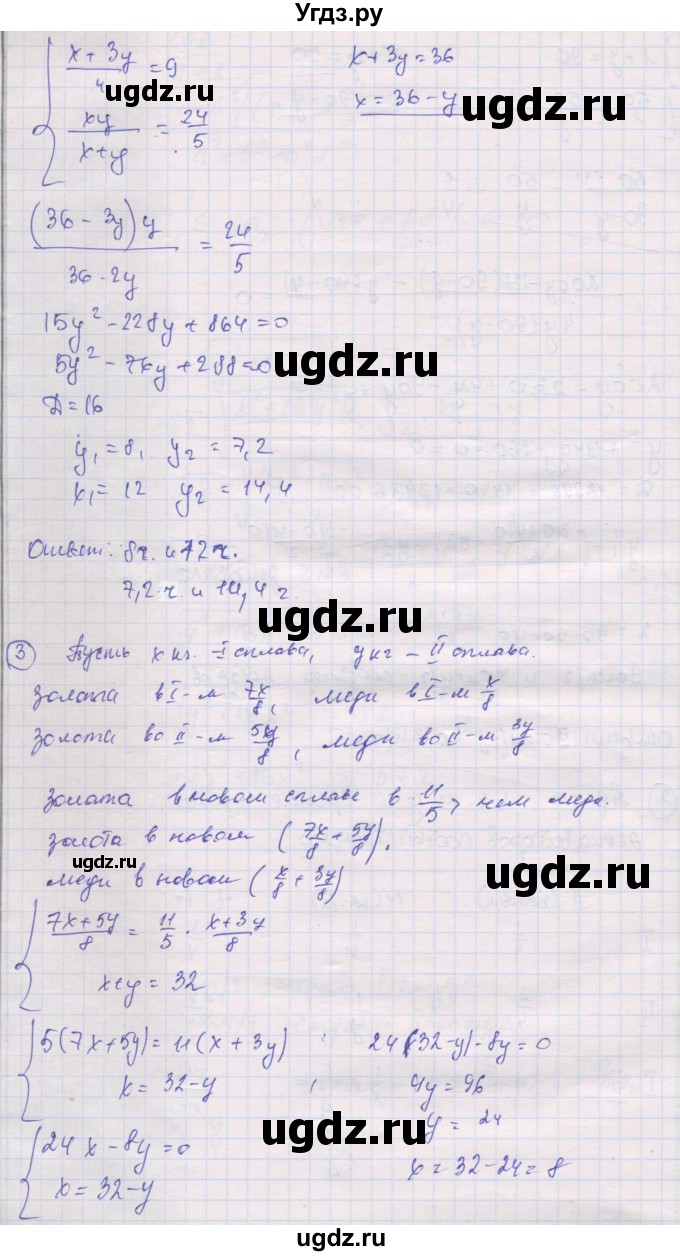 Угдз.ру
{ (x + 3y)/4 = 9      x + 3y = 36
xy/(x+y) = 24/5      x = 36 - y
ugdz.ru ugdz.ru
(36 - 3y)y / (36 - 2y) = 24/5
15y² - 228y + 864 = 0
5y² - 76y + 288 = 0
ugdz.ru
D = 16
y₁ = 8, y₂ = 7,2
x₁ = 12 y₂ = 14,4
Ответ: 8ч. и 12ч.
7,2 ч. и 14,4 ч.
ugdz.ru
③ Пусть x кг. - I сплава, y кг - II сплава.
Золота в I-м 7x/8, меди в I-м x/8
Золота во II-м 5y/8, меди во II-м 3y/8
ugdz.ru
Золота в новом сплаве в 11/5 > чем меди.
золота в новом (7x/8 + 5y/8),
ugdz.ru
меди в новом (x/8 + 3y/8)
{ (7x + 5y)/8 = 11/5 · (x + 3y)/8
x + y = 32
ugdz.ru
{ 5(7x + 5y) = 11(x + 3y)      24(32 - y) - 8y = 0
x = 32 - y      4y = 96
ugdz.ru
y = 24
{ 24x - 8y = 0      x = 32 - 24 = 8
x = 32 - y
ugdz.ru